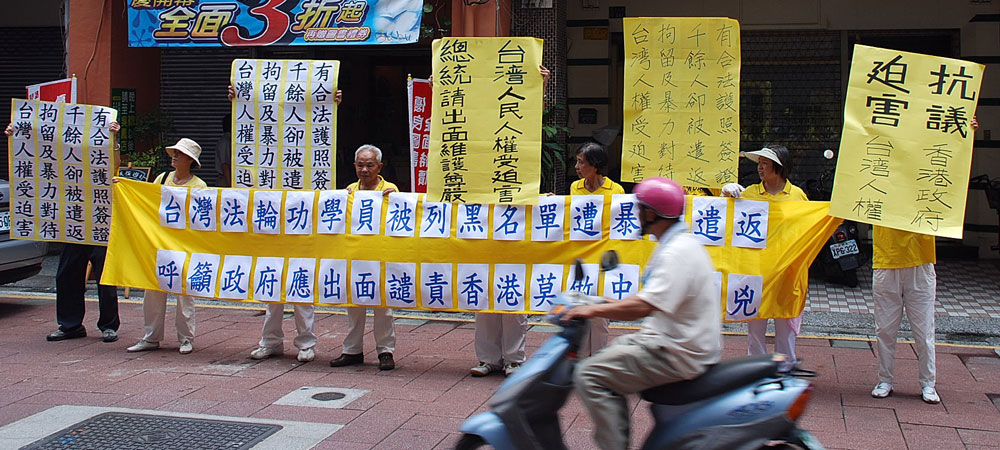 慶開幕
全面3折起
有合法護照簽證
千餘人卻被遣返
拘留及暴力對待
台灣人權受迫害
有合法護照簽
千餘人卻被遣
拘留及暴力對
台灣人權受迫
台灣人民人權受迫害
總統請出面維護尊嚴
有合法護照簽
千餘人卻被遣返
拘留及暴力對待
台灣人權受
抗議香港政府
迫害台灣人權
台灣法輪功學員被列黑名單遭暴 遣返
呼籲政府應出面譴責香港莫做中 兇